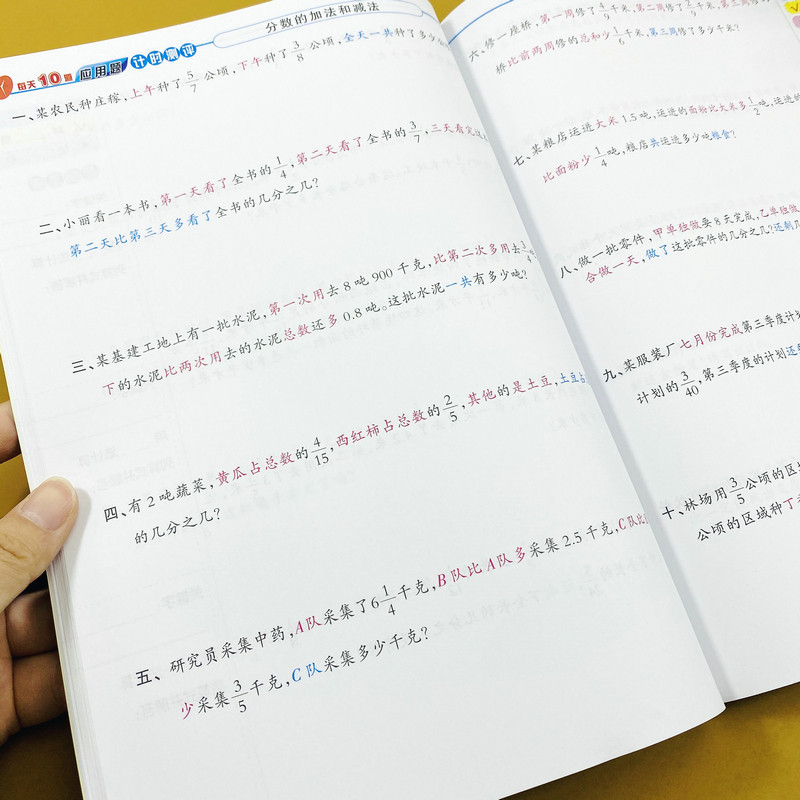 分数的加法和减法
每天10道 应用题 计时测评
一、某农民种庄稼,上午种了5/7公顷,下午种了3/8公顷,全天一共种了多少
二、小丽看一本书,第一天看了全书的1/4,第二天看了全书的3/7,三天看完
第二天比第三天多看了全书的几分之几?
三、某基建工地上有一批水泥,第一次用去8吨900千克,比第二次多用去3/4
下的水泥比两次用去的水泥总数还多0.8吨。这批水泥一共有多少吨?
四、有2吨蔬菜,黄瓜占总数的4/15,西红柿占总数的2/5,其他的是土豆,土豆占
的几分之几?
五、研究员采集中药,A队采集了6 1/4千克,B队比A队多采集2.5千克,C队比
少采集3/5千克,C队采集多少千克?
六、修一座桥,第一周修了4/9千米,第二周修了2/9千米,第三周修
桥比前两周修的总和少1/6千米,第三周修了多少千米?
七、某粮店运进大米1.5吨,运进的面粉比大米多1/2吨,运进的
比面粉少1/4吨,粮店共运进多少吨粮食?
八、做一批零件,甲单独做要8天完成,乙单独做
合做一天,做了这批零件的几分之几?还剩几
九、某服装厂七月份完成第三季度计划
计划的3/40,第三季度的计划还
十、林场用3/5公顷的区域
公顷的区域种丁